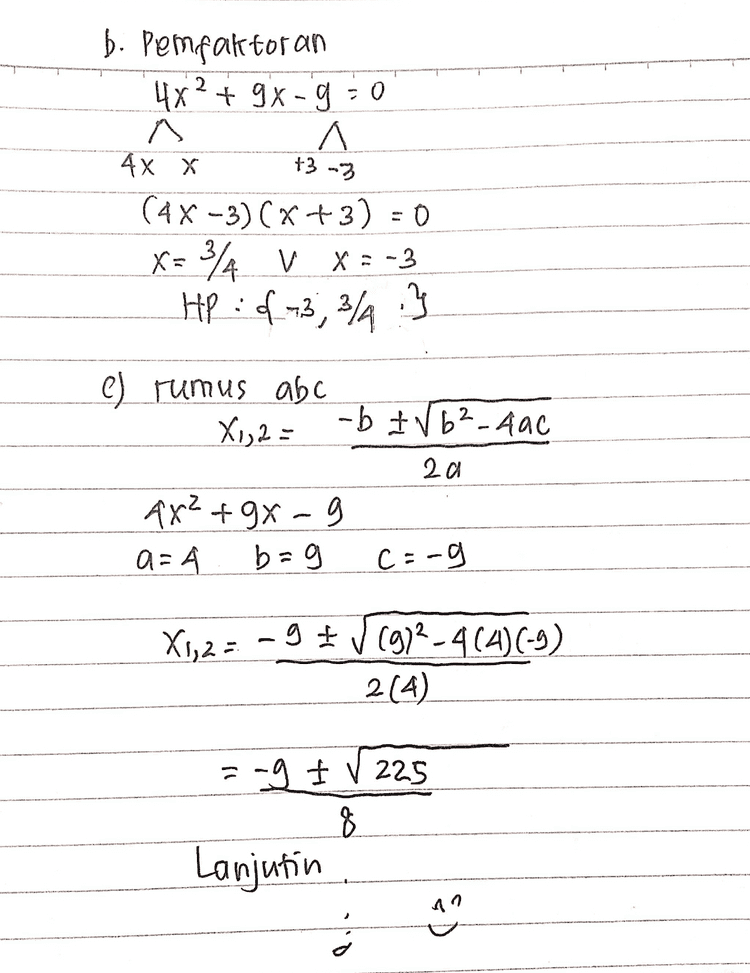 b. Pemfaktoran
4x² + 9x - 9 = 0
4x x +3 -3
(4x - 3)(x + 3) = 0
x = 3/4 V x = -3
HP : { -3, 3/4 }
c) rumus abc
x1,2 = -b ± √b² - 4ac
2a
4x² + 9x - 9
a = 4 b = 9 c = -9
x1,2 = -9 ± √(9)² - 4(4)(-9)
2(4)
= -9 ± √225
8
Lanjutin